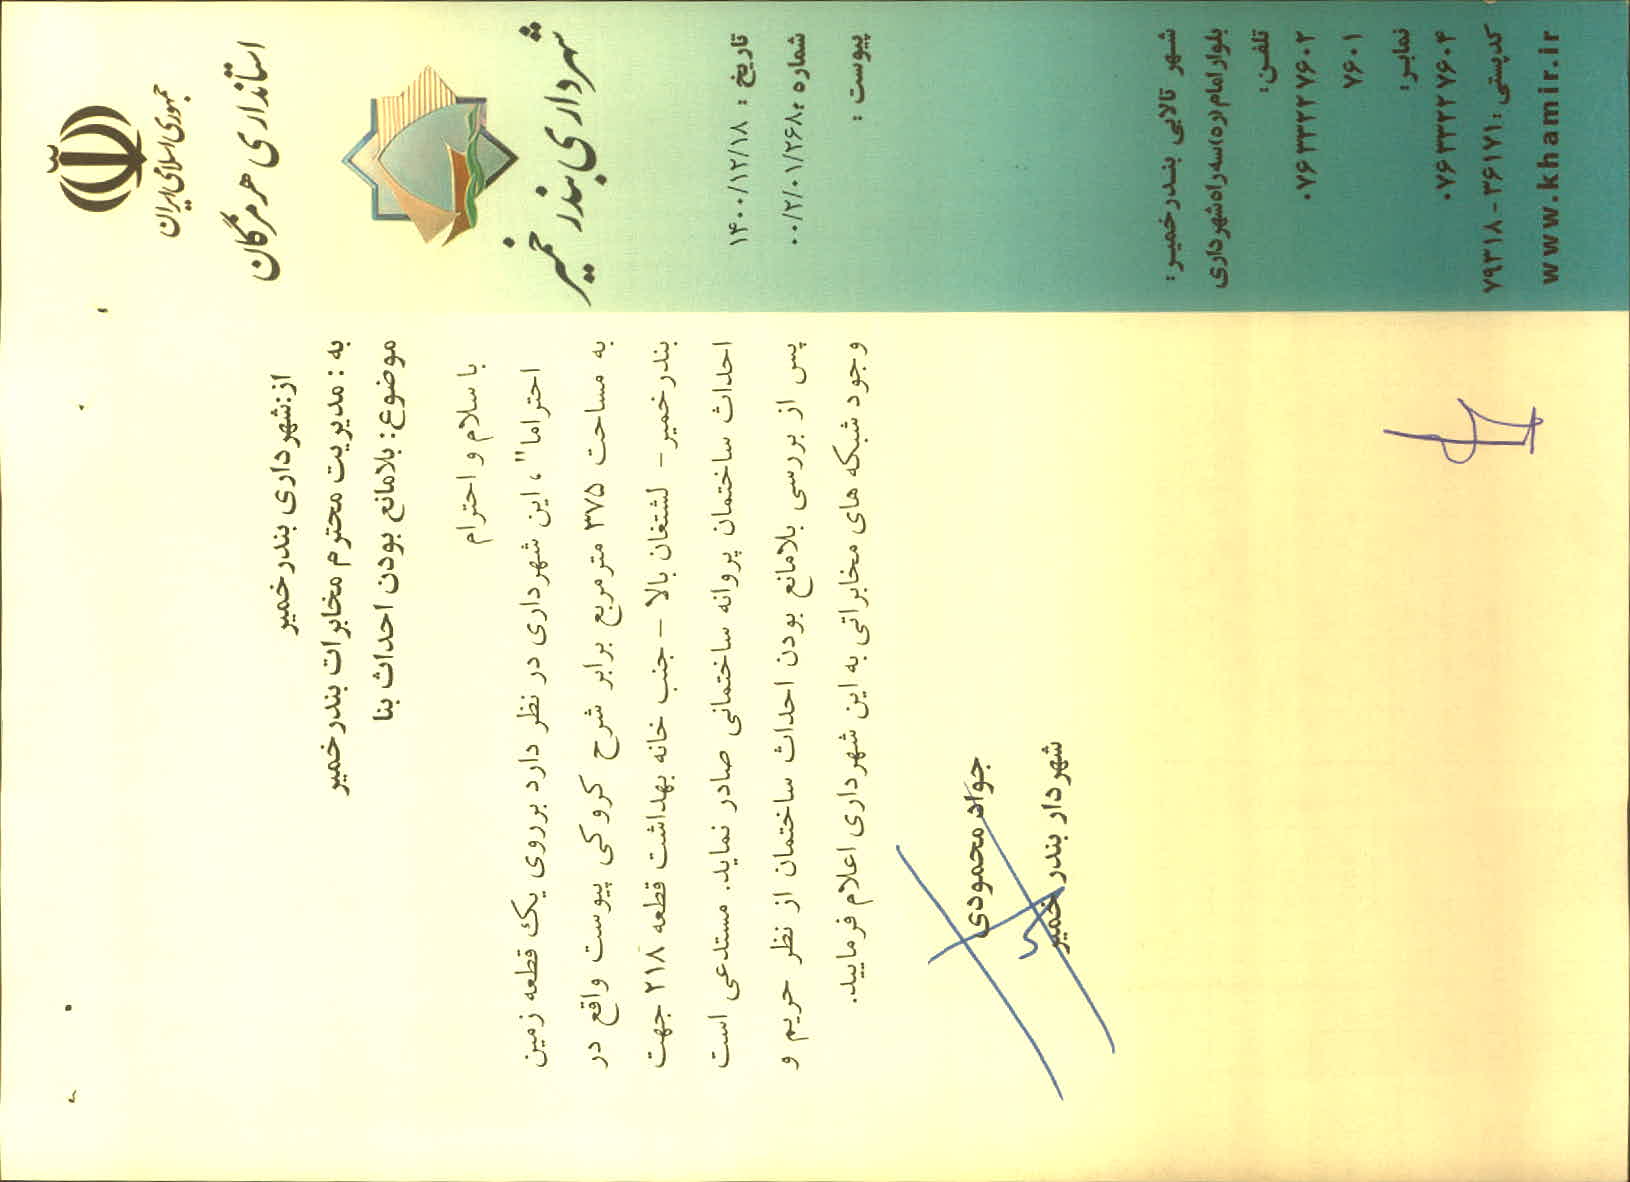 جمهوری اسلامی ایران
استانداری هرمزگان
شهرداری بندر خمیر
تاریخ : ۱۴۰۰/۱۲/۱۸
شماره :۰۰/۲/۰۱/۲۶۸۸
پیوست :
شهر تالابی بندرخمیر:
بلوار امام(ره)سه راه شهرداری
تلفن:
۰۷۶۳۳۲۲۷۶۰۲
۷۶۰۱
نمابر:
۰۷۶۳۳۲۲۷۶۰۴
کدپستی :۳۶۱۷۱-۷۹۳۱۸
www.khamir.ir
از:شهرداری بندرخمیر
به : مدیریت محترم مخابرات بندرخمیر
موضوع: بلامانع بودن احداث بنا
با سلام و احترام
احتراما" ، این شهرداری در نظر دارد برروی یک قطعه زمین
به مساحت ۳۷۵ مترمربع برابر شرح کروکی پیوست واقع در
بندرخمیر- لشتغان بالا -جنب خانه بهداشت قطعه ۲۱۸ جهت
احداث ساختمان پروانه ساختمانی صادر نماید. مستدعی است
پس از بررسی بلامانع بودن احداث ساختمان از نظر حریم و
وجود شبکه های مخابراتی به این شهرداری اعلام فرمایید.
جواد محمودی
شهردار بندر خمیر